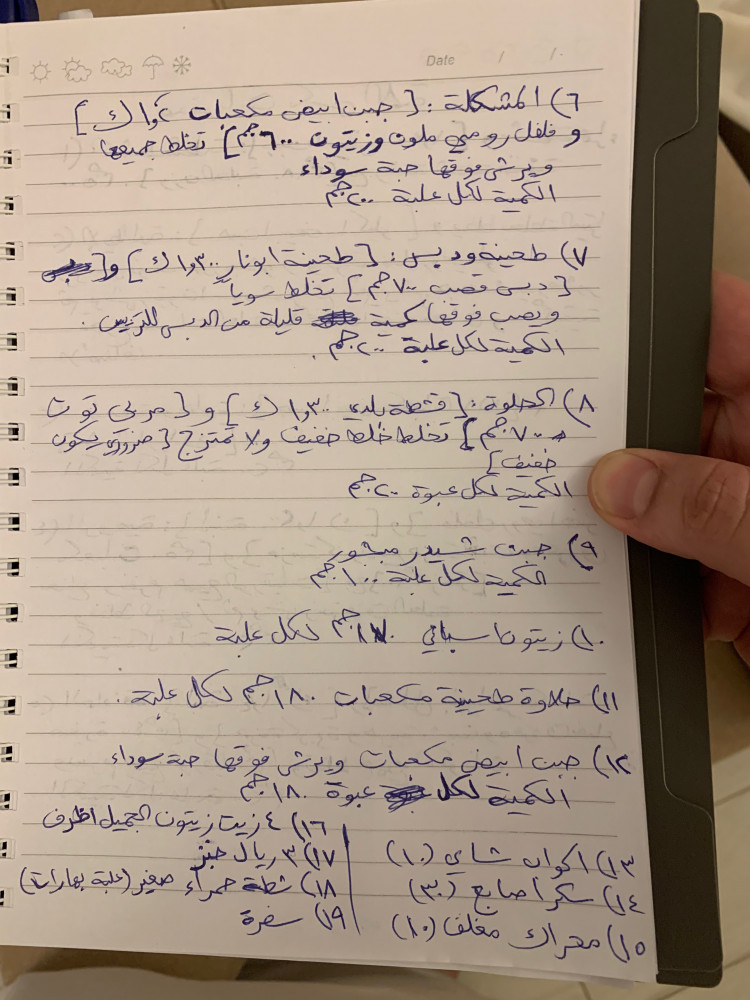 Date / /
٦) المشكلة : [ جبن ابيض مكعبات ١٫٢ ك ]
و فلفل رومي ملون وزيتون ٦٠٠ جم ] تخلط جميعها
ويرش فوقها حبة سوداء
الكمية لكل علبة ٢٠٠ جم
٧) طحينة ودبس : [ طحينة ابونار ١٫٣٠٠ ك ] و [
[ دبس قصب ٧٠٠ جم ] تخلط سوياً
ويصب فوقها كمية قليلة من الدبس للتزيين .
الكمية لكل علبة ٢٠٠ جم .
٨) الحلوة : [ قشطة بلدي ١٫٣٠٠ ك ] و [ مربى توت
٧٠٠ جم ] تخلط خلط خفيف ولا تمتزج [ ضروري يكون
خفيف ]
الكمية لكل عبوة ٢٠٠ جم
٩) جبن شيدر مبشور
الكمية لكل علبة ١٠٠ جم
١٠) زيتون اسباني جم لكل علبة
١١) حلاوة طحينية مكعبات ١٨٠ جم لكل علبة .
١٢) جبن ابيض مكعبات ويرش فوقها حبة سوداء
الكمية لكل عبوة ١٨٠ جم
١٣) اكواب شاي (١٠)
١٤) سكر أصابع (٣٠)
١٥) محراك مغلف (١٠)
١٦) ٤ زيت زيتون الجميل اظرف
١٧) ٣ ريال خبز
١٨) شطة حمراء صغير (علبة بهارات)
١٩) سفرة